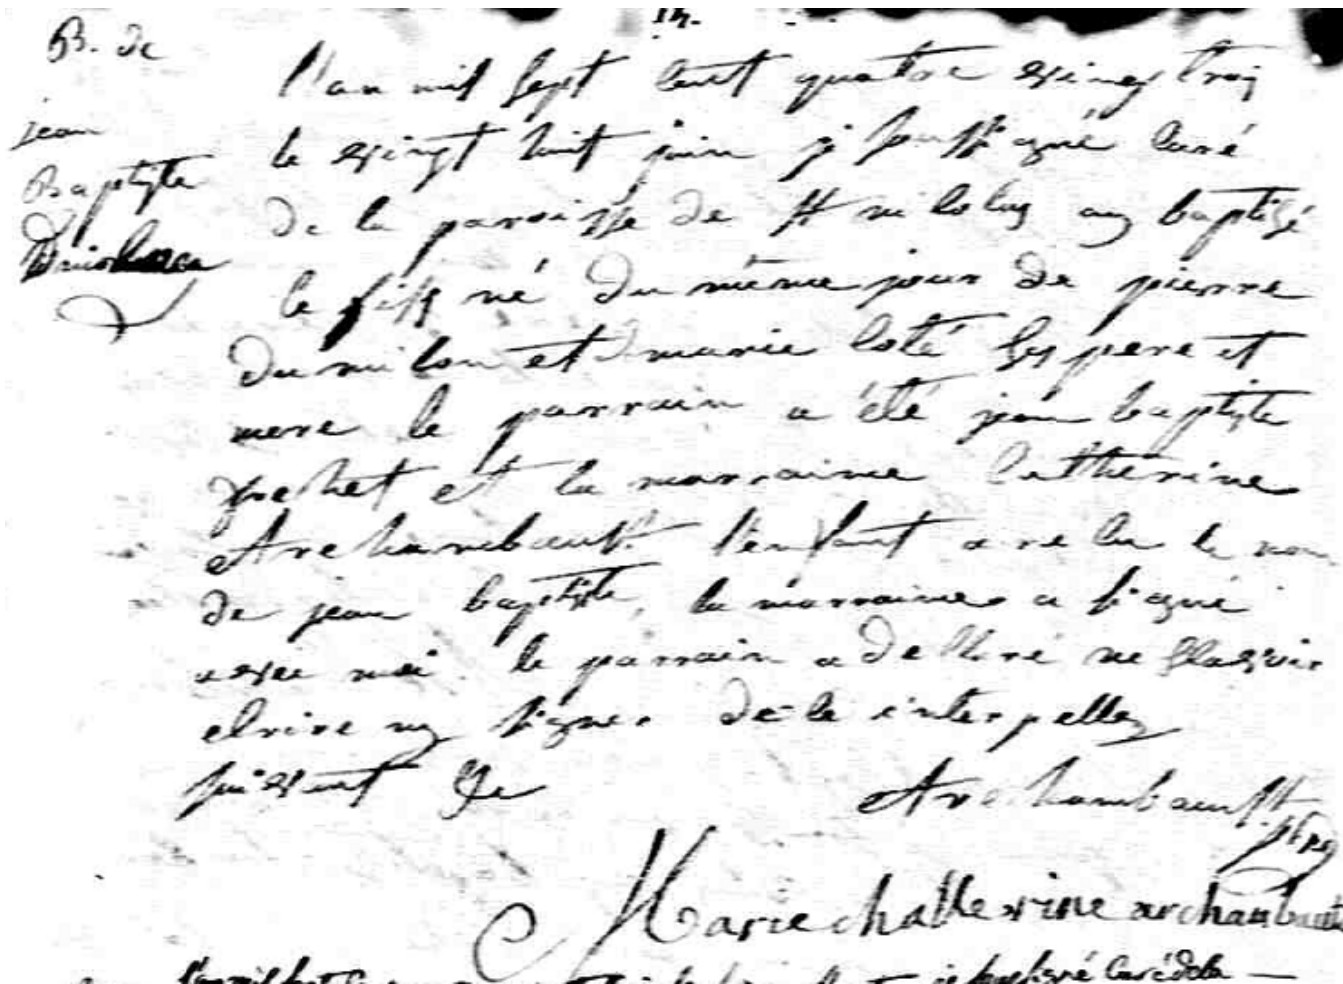 B. de
jean
Baptiste
l'an mil sept cent quatre vingt trois
le vingt huit juin je soussigné curé
de la paroisse de st nicolas ay baptisé
le fils né du même jour de pierre
et marie coté ses pere et
mere le parrain a été jean baptiste
frechet et la marraine Catherine
Archambault l'enfant a recu le nom
de jean baptiste, la marraine a signé
avec moi le parrain a declaré ne scavoir
ecrire ny signer de ce interpellez
suivant &c
Archambault
ptre
Marie chatterine archambault